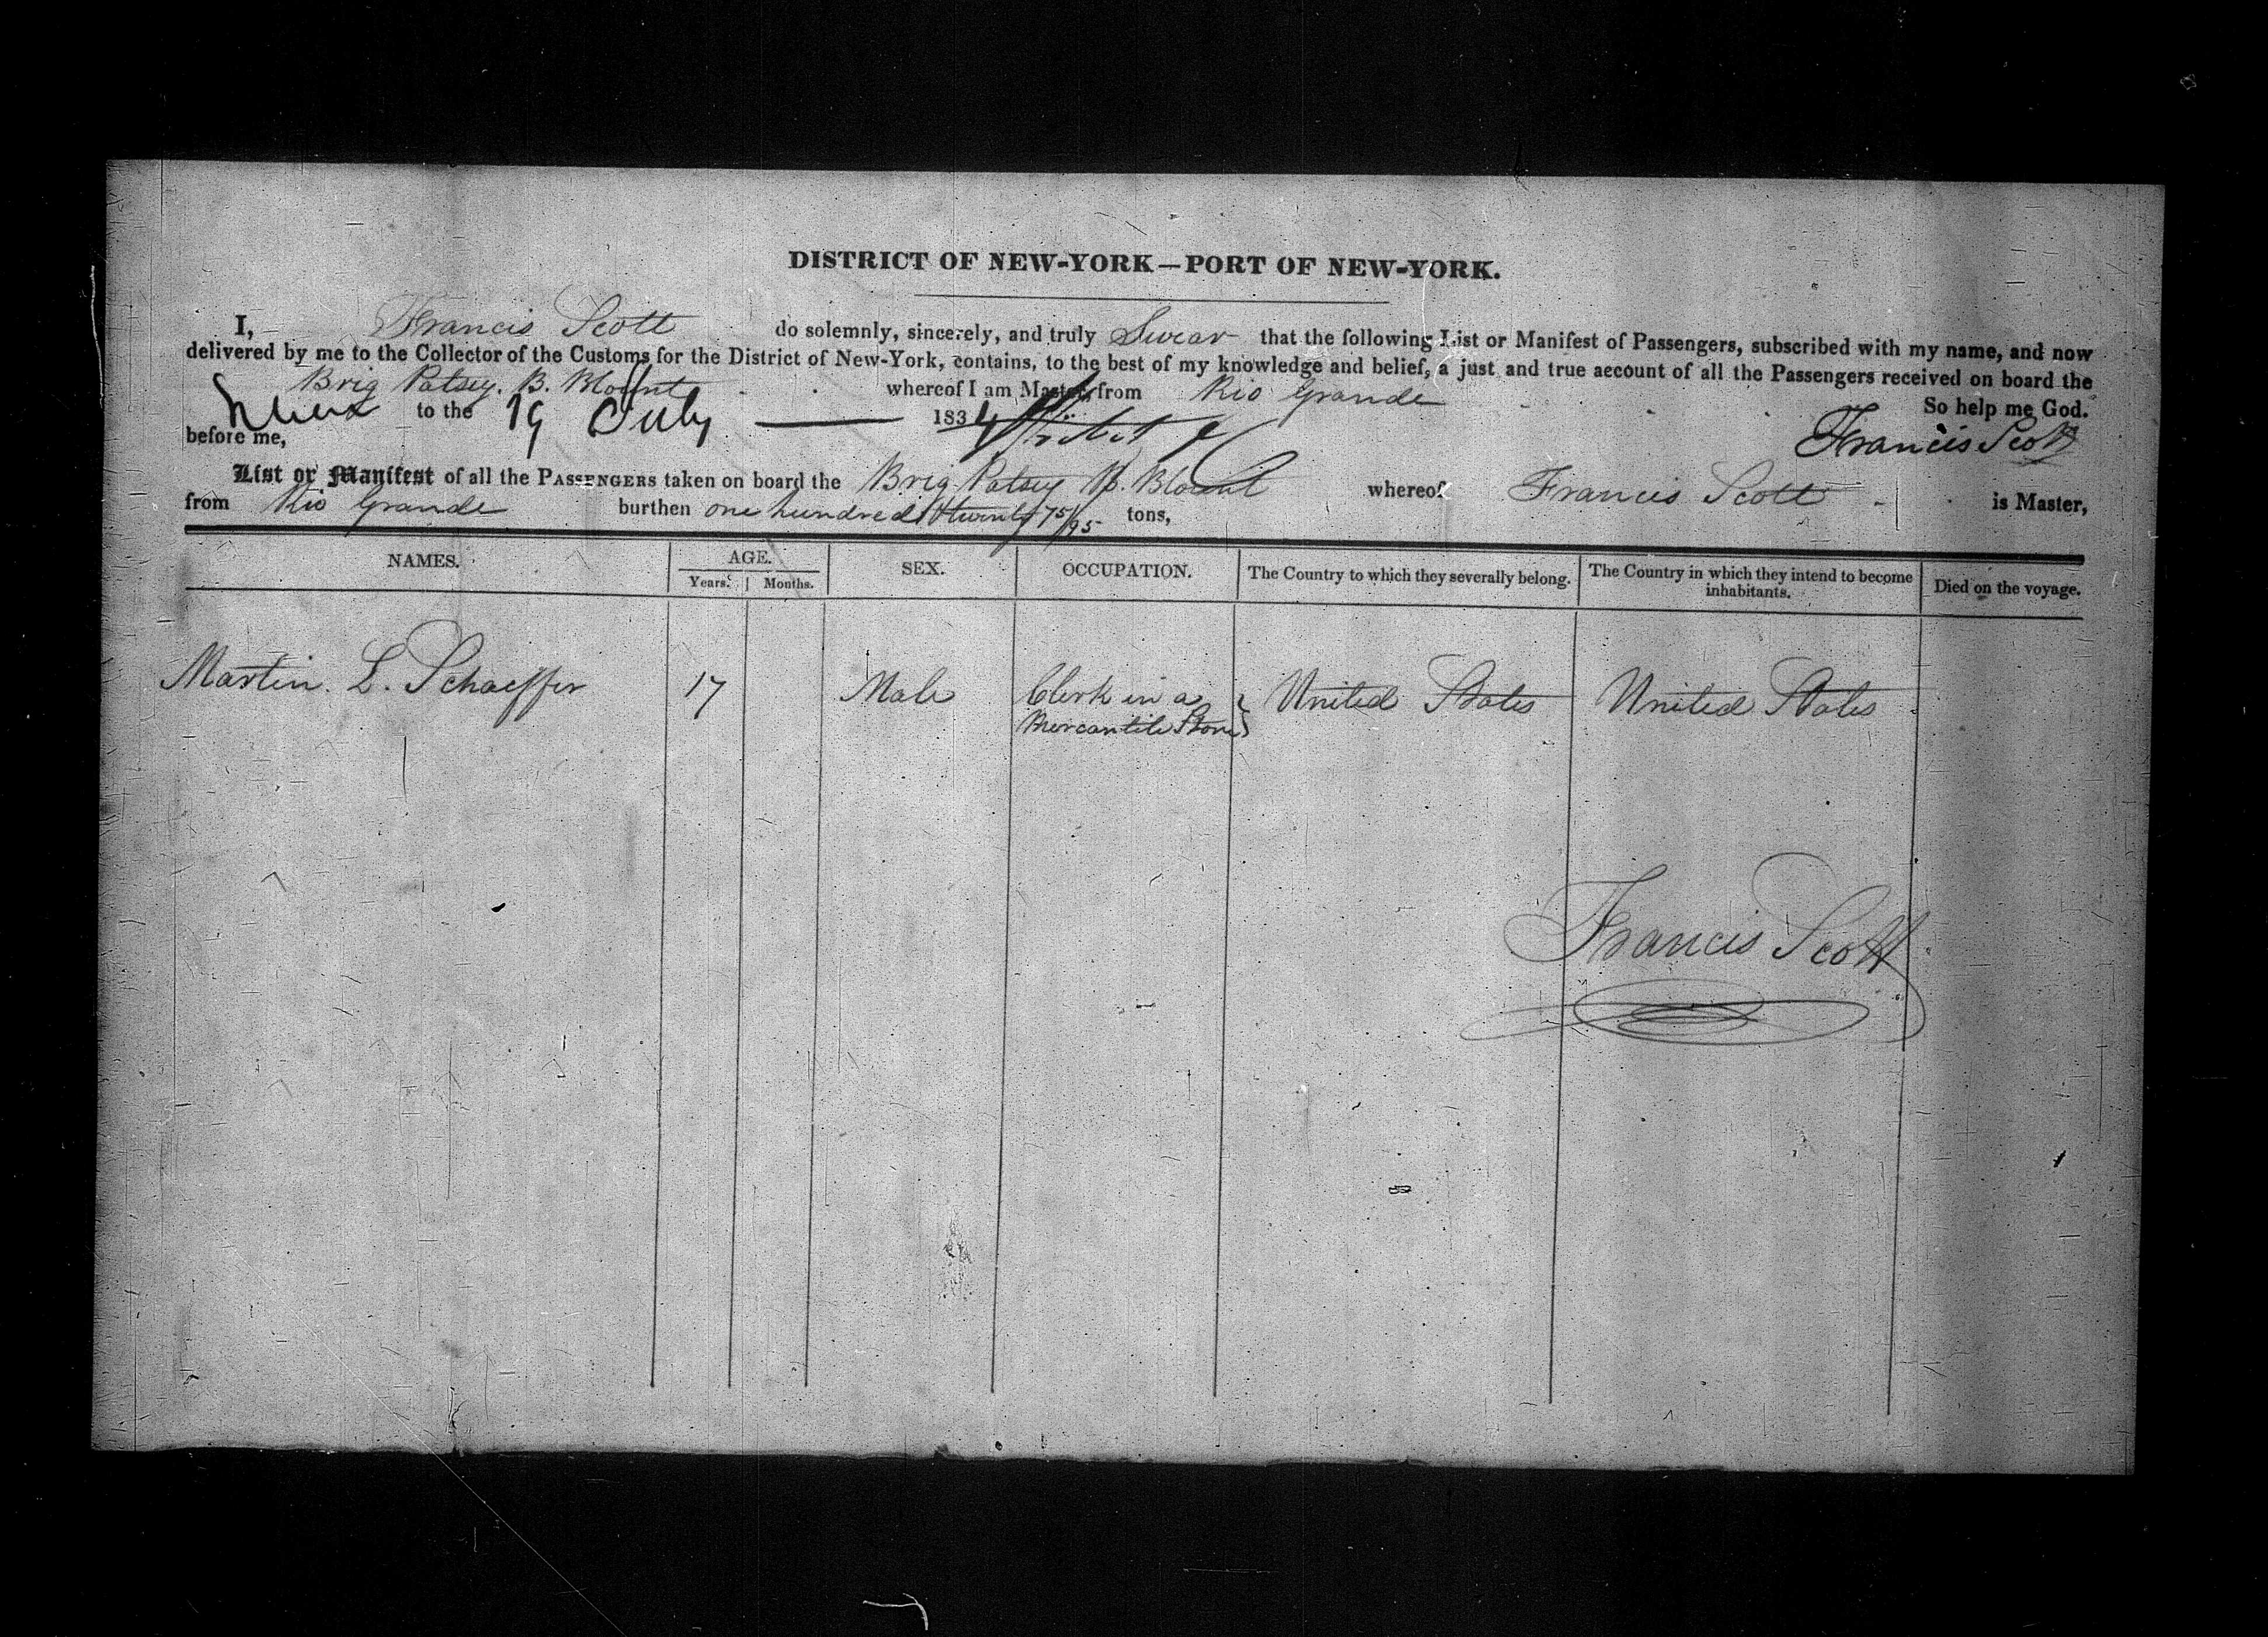 DISTRICT OF NEW-YORK—PORT OF NEW-YORK.
I, Francis Scott do solemnly, sincerely, and truly Swear that the following List or Manifest of Passengers, subscribed with my name, and now
delivered by me to the Collector of the Customs for the District of New-York, contains, to the best of my knowledge and belief, a just and true account of all the Passengers received on board the
Brig Patsey. B. Blount whereof I am Master, from Rio Grande
to the 19 July 1834 So help me God.
before me, Francis Scott
List or Manifest of all the PASSENGERS taken on board the Brig Patsey B. Blount whereof Francis Scott is Master,
from Rio Grande burthen one hundred & twenty 75/95 tons,
NAMES. AGE. SEX. OCCUPATION. The Country to which they severally belong. The Country in which they intend to become inhabitants. Died on the voyage.
Years. Months.
Martin. L. Schaeffer 17 Male Clerk in a United States United States
Mercantile Store
Francis Scott